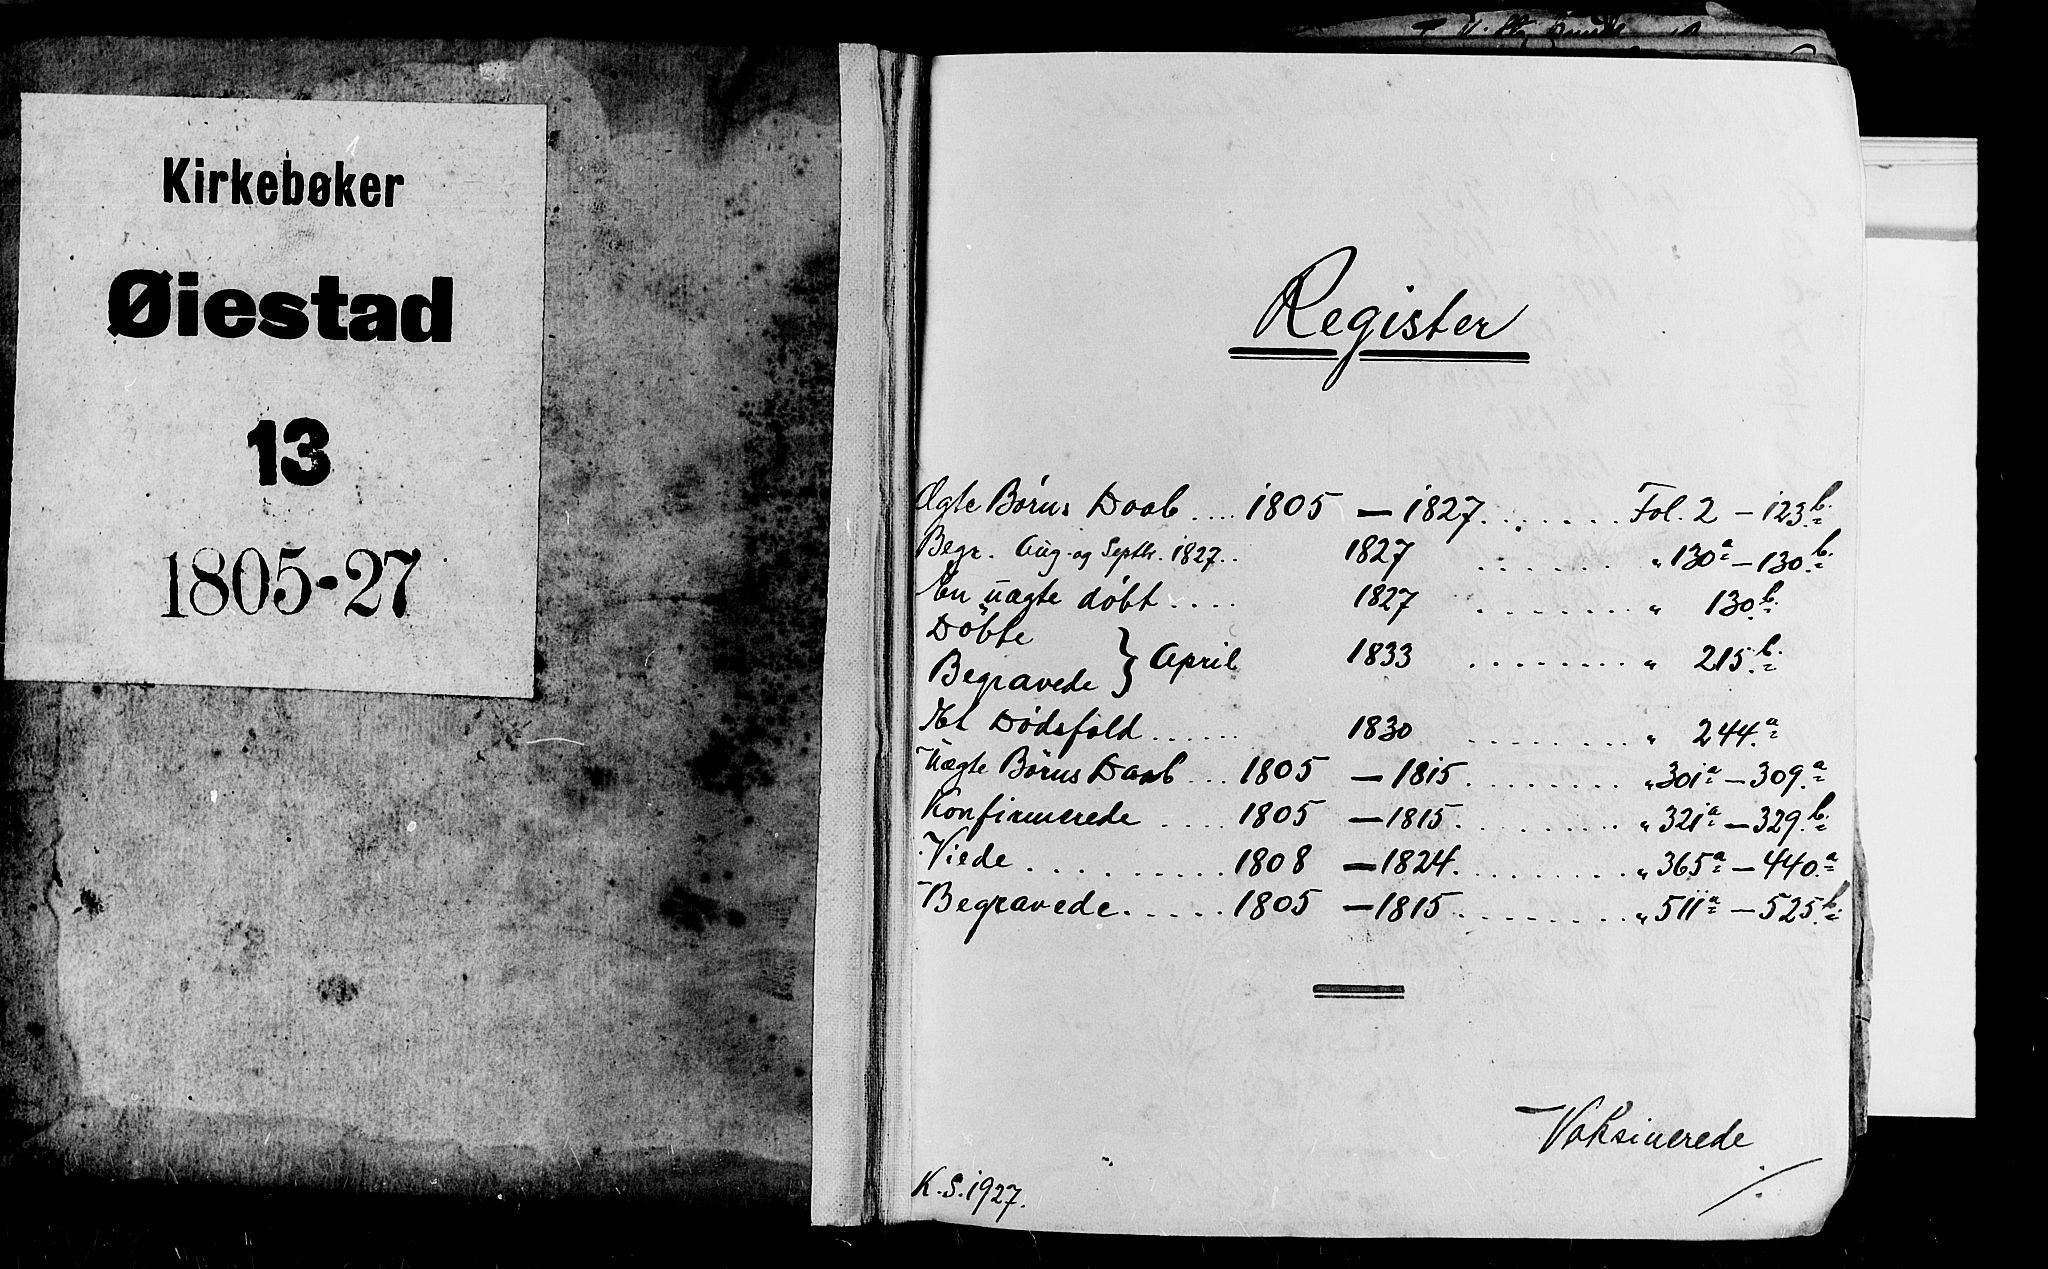 Kirkebøker
Øiestad
13
1805-27
Register
Ægte Børns Daab .... 1805 — 1827. . . . . . . Fol. 2 — 123b.
Begr. Aug. og Septbr. 1827. . 1827 . . . . . . " 130a — 130b.
En uægte døbt . . . . 1827 . . . . . . . " 130b.
Døbte
Begravede } April 1833 . . . . . . . . " 215b.
Et Dødsfald . . . . . . 1830 . . . . . . . . " 244a
Uægte Børns Daab . . . 1805 — 1815. . . . . . . . " 301a — 309a
Konfirmerede . . . . 1805 — 1815. . . . . . . . " 321a — 329b.
Viede . . . . . . . . . . 1808 — 1824. . . . . . . . " 365a — 440a
Begravede. . . . . 1805 — 1815. . . . . . . . " 511a — 525b.
Vaksinerede
K. S. 1927.